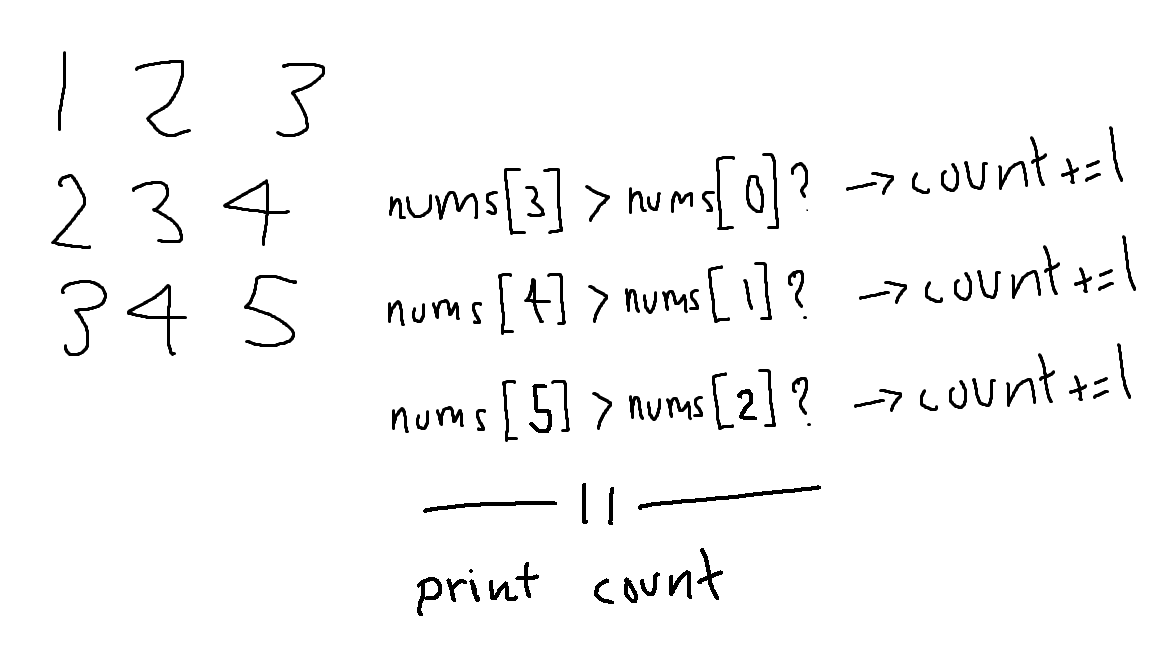 1 2 3
2 3 4 nums[3] > nums[0]? → count+=1
3 4 5 nums[4] > nums[1]? → count+=1
nums[5] > nums[2]? → count+=1
—— || ——
print count